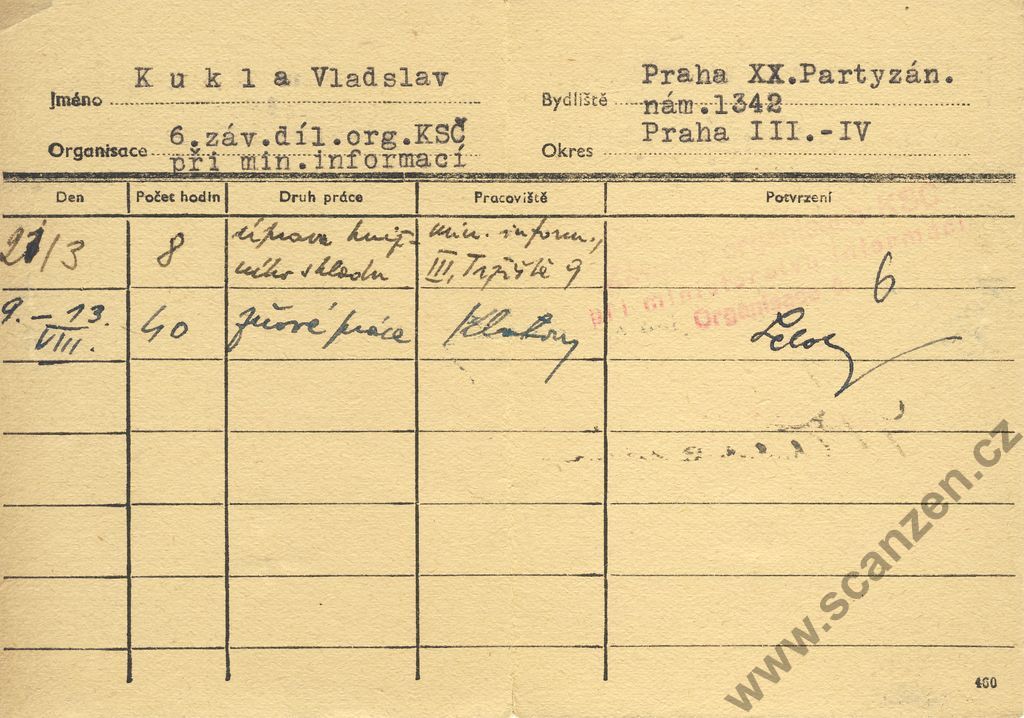 Jméno K u k l a Vladslav
Bydliště Praha XX.Partyzán.
nám.1342
Organisace 6.záv.díl.org.KSČ
při min.informací
Okres Praha III.-IV
Den Počet hodin Druh práce Pracoviště Potvrzení
21/3 8 úprava kniž- min. inform.,
ního skladu III, Tržiště 9
6
9. – 13. 40 žňové práce Klatovy
VIII.
KSČ
při ministerstvu informací
Organisace
460
www.scanzen.cz